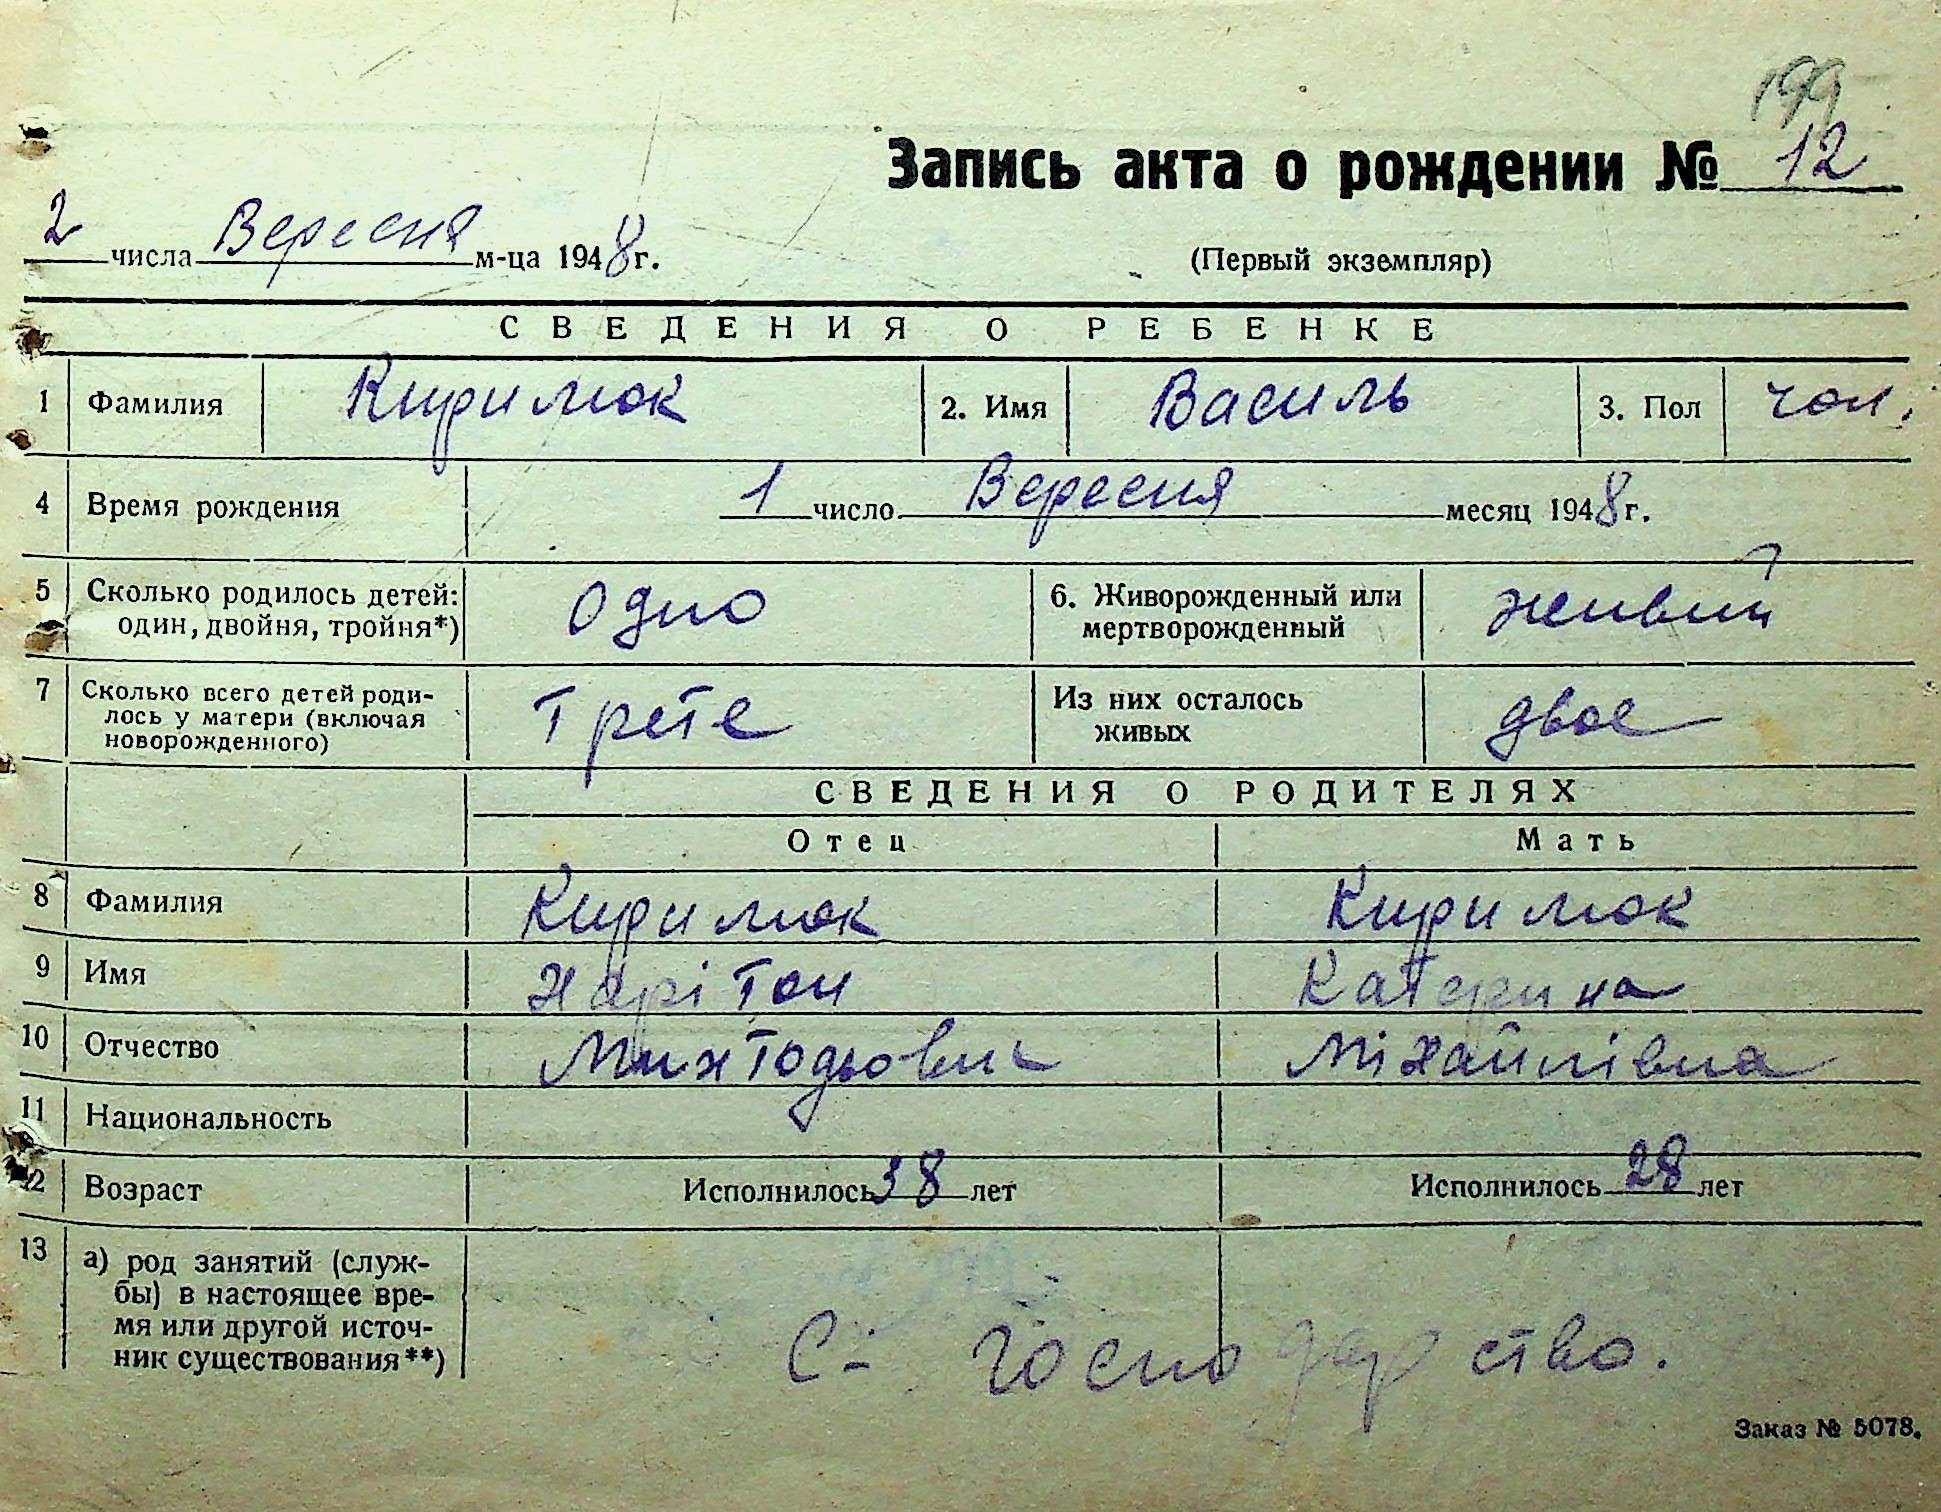 199
Запись акта о рождении № 12
2 числа Вересня м-ца 1948 г.
(Первый экземпляр)
СВЕДЕНИЯ О РЕБЕНКЕ
1 Фамилия Кирилюк 2. Имя Василь 3. Пол чол.
4 Время рождения 1 число Вересня месяц 1948 г.
5 Сколько родилось детей: один, двойня, тройня*) Одно 6. Живорожденный или мертворожденный живий
7 Сколько всего детей родилось у матери (включая новорожденного) Трете Из них осталось живых двое
СВЕДЕНИЯ О РОДИТЕЛЯХ
Отец Мать
8 Фамилия Кирилюк Кирилюк
9 Имя Харітон Катерина
10 Отчество Михтодьович Міхайлівна
11 Национальность
12 Возраст Исполнилось 38 лет Исполнилось 28 лет
13 а) род занятий (службы) в настоящее время или другой источник существования**) С-Господарство.
Заказ № 5078.